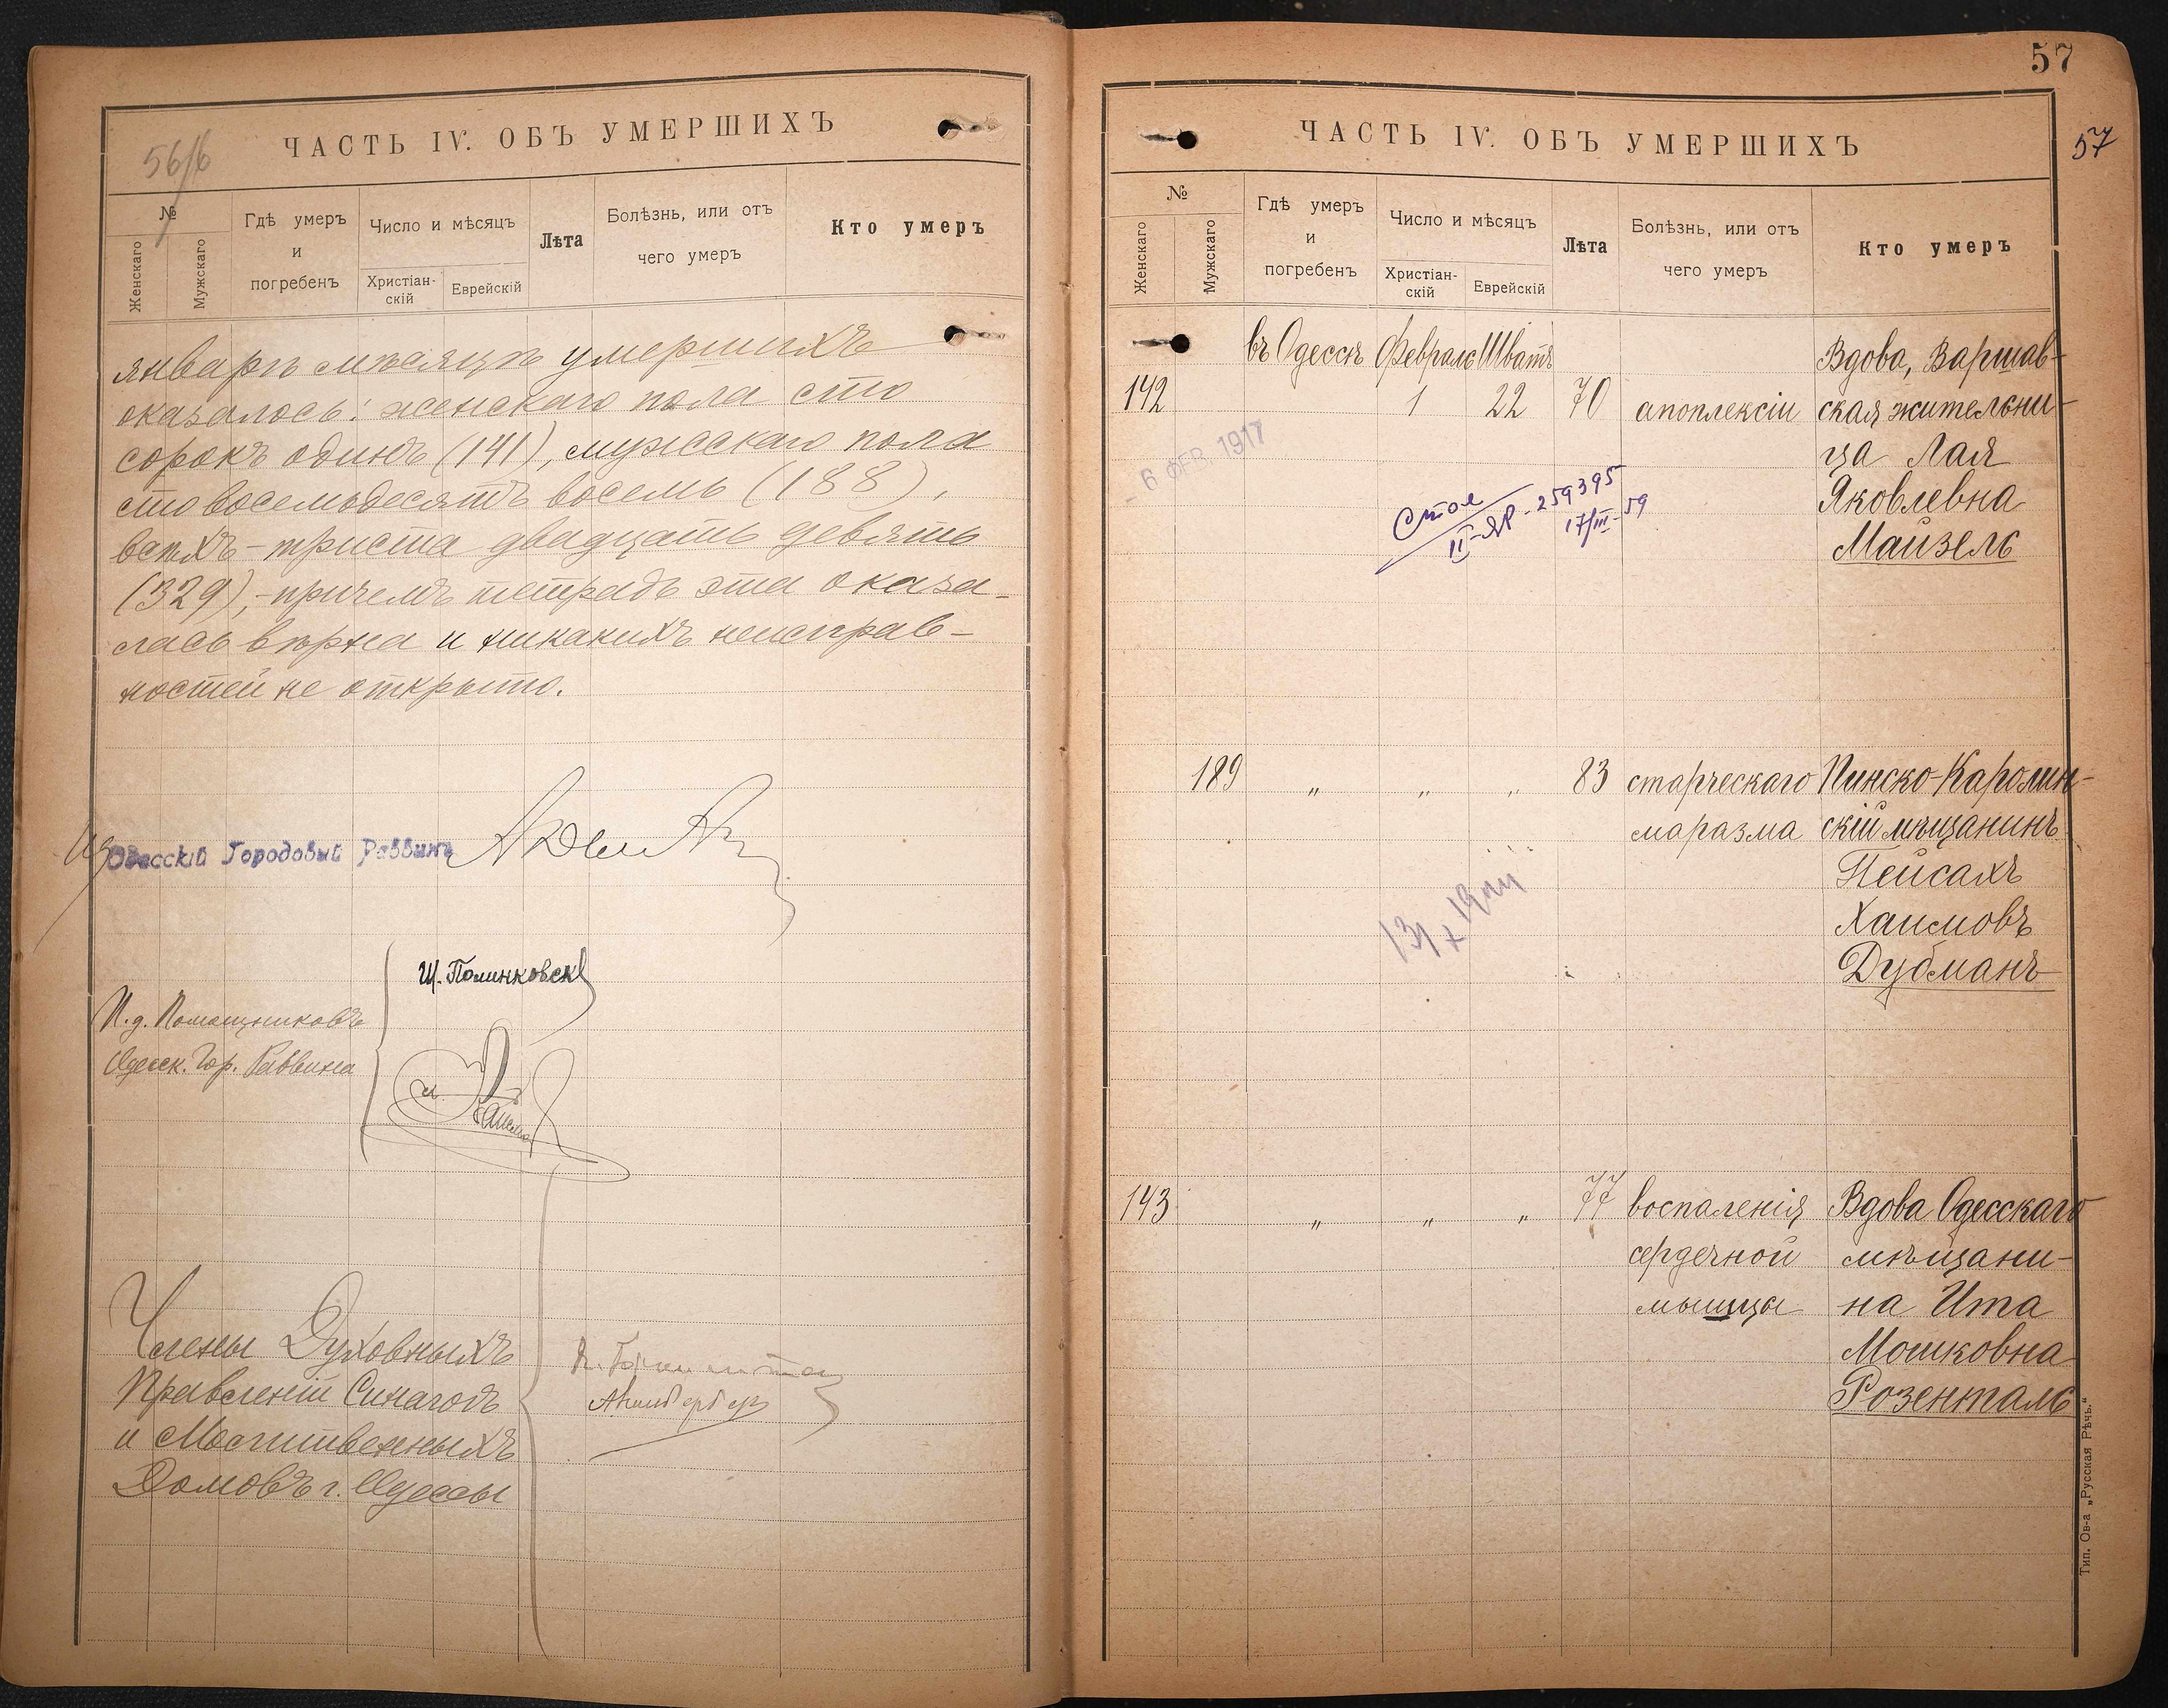 56/б
ЧАСТЬ IV. ОБЪ УМЕРШИХЪ
№
Женскаго
Мужскаго
Гдѣ умеръ
и
погребенъ
Число и мѣсяцъ
Христіан-
скій
Еврейскій
Лѣта
Болѣзнь, или отъ
чего умеръ
Кто умеръ
январѣ мѣсяцѣ умершихъ
оказалось: женскаго пола сто
сорокъ одинъ (141), мужскаго пола
сто восемьдесятъ восемь (188),
всѣхъ - триста двадцать девять
(329), - причемъ тетрадь эта оказа-
лась вѣрна и никакихъ неисправ-
ностей не открыто.
Одесскій Городовый Раввинъ
И.д. Помощниковъ
Одесск. Гор. Раввина
Щ. Полинковск
Члены Духовныхъ
Правленій Синагогъ
и Молитвенныхъ
Домовъ г. Одессы
57
57
ЧАСТЬ IV. ОБЪ УМЕРШИХЪ
№
Женскаго
Мужскаго
Гдѣ умеръ
и
погребенъ
Число и мѣсяцъ
Христіан-
скій
Еврейскій
Лѣта
Болѣзнь, или отъ
чего умеръ
Кто умеръ
въ Одессѣ Февраль Шватъ Вдова, Варшав-
142 1 22 70 апоплексіи ская жительни-
ца Лая
Яковлевна
Майзель
- 6 ФЕВ. 1917
II-ЯР-259395
17/III-59
189 " " " 83 старческаго Пинско-Каролин-
маразма скій мѣщанинъ
Пейсахъ
Хаимовъ
Дубманъ
143 " " " 77 воспаленія Вдова Одесскаго
сердечной мѣщани-
мышцы на Ита
Мошковна
Розенталь
Тип. Ов-а „Русская Рѣчь.“